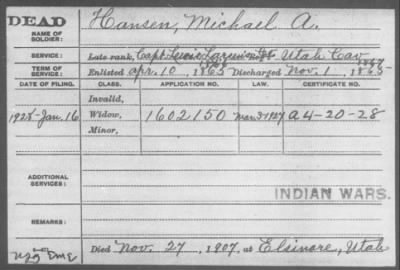 DEAD
NAME OF SOLDIER: Hansen, Michael A.
SERVICE: Late rank, Capt. Utah Cav
TERM OF SERVICE: Enlisted Apr. 10, 1865 1866 Discharged Nov. 1, 1865 1866
DATE OF FILING. CLASS. APPLICATION NO. LAW. CERTIFICATE NO.
Invalid,
1928-Jan. 16 Widow, 1602150 Mar 3 1927 A4-20-28
Minor,
ADDITIONAL SERVICES:
INDIAN WARS.
REMARKS:
Died Nov. 27, 1907, at Elsinore, Utah